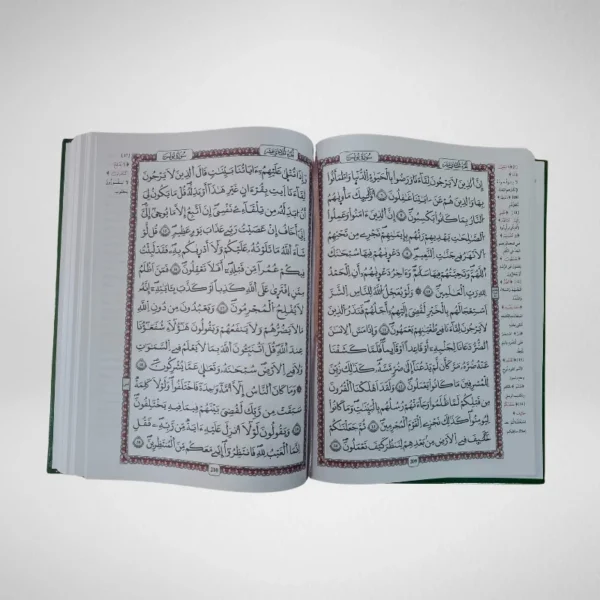 سورة يونس
إن الذين لا يرجون لقاءنا ورضوا بالحيوة الدنيا واطمأنوا
بها والذين هم عن ءايتنا غفلون أولئك مأويهم
النار بما كانوا يكسبون إن الذين ءامنوا وعملوا
الصلحت يهديهم ربهم بإيمنهم تجرى من تحتهم
الانهر فى جنت النعيم دعويهم فيها سبحنك
اللهم وتحيتهم فيها سلم وءاخر دعويهم أن الحمد
لله رب العلمين ولو يعجل الله للناس الشر
استعجالهم بالخير لقضى إليهم أجلهم فنذر الذين
لا يرجون لقاءنا فى طغينهم يعمهون وإذا مس الانسن
الضر دعانا لجنبه أو قاعدا او قائما فلما كشفنا
عنه ضره مر كأن لم يدعنا إلى ضر مسه كذلك زين
للمسرفين ما كانوا يعملون ولقد اهلكنا القرون
من قبلكم لما ظلموا وجاءتهم رسلهم بالبينت وما كانوا
ليومنوا كذلك نجزى القوم المجرمين ثم جعلنكم
خلئف فى الارض من بعدهم لننظر كيف تعملون
209
سورة يونس
وإذا تتلى عليهم ءاياتنا بينت قال الذين لا يرجون
لقاءنا ايت بقرءان غير هذا أو بدله قل ما يكون لى
أن ابدله من تلقاءى نفسى إن اتبع إلا ما يوحى إلى
إنى أخاف إن عصيت ربى عذاب يوم عظيم قل لو
شاء الله ما تلوته عليكم ولا أدريكم به فقد لبثت
فيكم عمرا من قبله أفلا تعقلون فمن اظلم
ممن افترى على الله كذبا او كذب بئايته إنه
لا يفلح المجرمون ويعبدون من دون الله
ما لا يضرهم ولا ينفعهم ويقولون هؤلاء شفعؤنا
عند الله قل اتنبئون الله بما لا يعلم فى السموت
ولا فى الارض سبحنه وتعلى عما يشركون
وما كان الناس إلا أمة وحدة فاختلفوا ولولا كلمة
سبقت من ربك لقضى بينهم فيما فيه يختلفون
ويقولون لولا أنزل عليه ءاية من ربه فقل
انما الغيب لله فانتظروا إنى معكم من المنتظرين
210